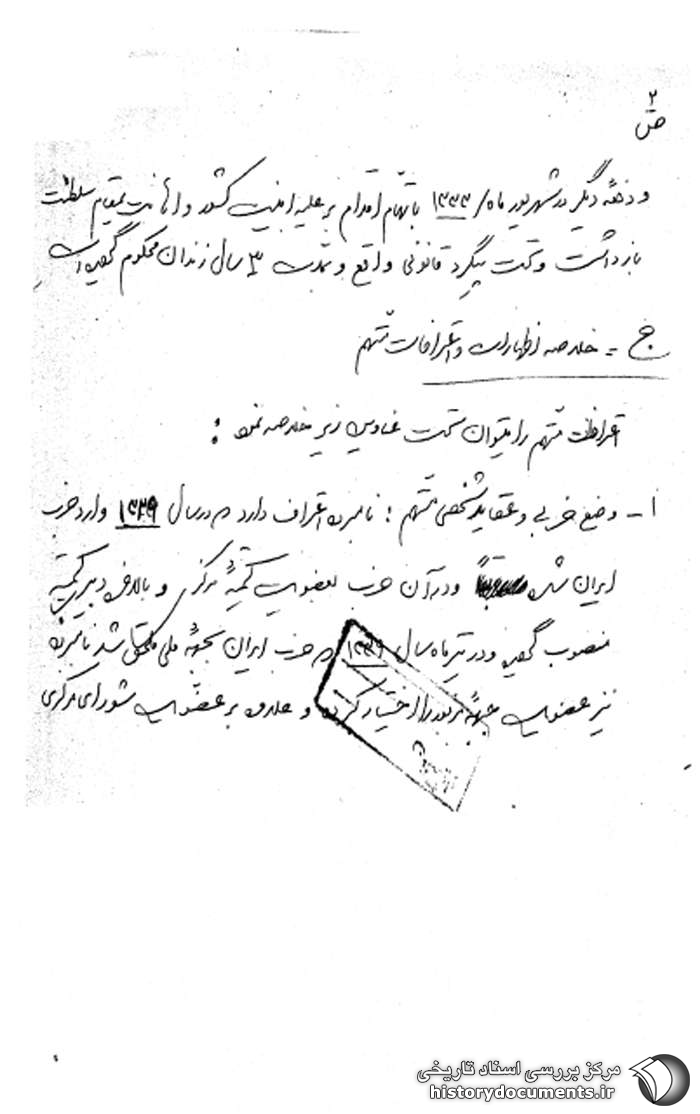 ص ۲
و دفعه دیگر در شهریور ماه/ ۱۳۴۴ باتهام اقدام بر علیه امنیت کشور و اهانت بمقام سلطنت
بازداشت و تحت پیگرد قانونی واقع و بمدت ۳ سال زندان محکوم گردیده است
ج = خلاصه اظهارات و اعترافات متهم
اعترافات متهم را میتوان تحت عناوین زیر خلاصه نمود :
۱- وضع حزبی و عقاید شخصی متهم : نامبرده اعتراف دارد که در سال ۱۳۳۹ وارد حزب
ایران شده و در آن حزب بعضویت کمیته مرکزی و بالاخره دبیر کمیته
منصوب گردیده و در تیر ماه سال که حزب ایران بجبهه ملی ملحق شد نامبرده
نیز عضویت جبهه مزبور را اختیار کرده و علاوه بر عضویت شورای مرکزی
مرکز بررسی اسناد تاریخی
historydocuments.ir